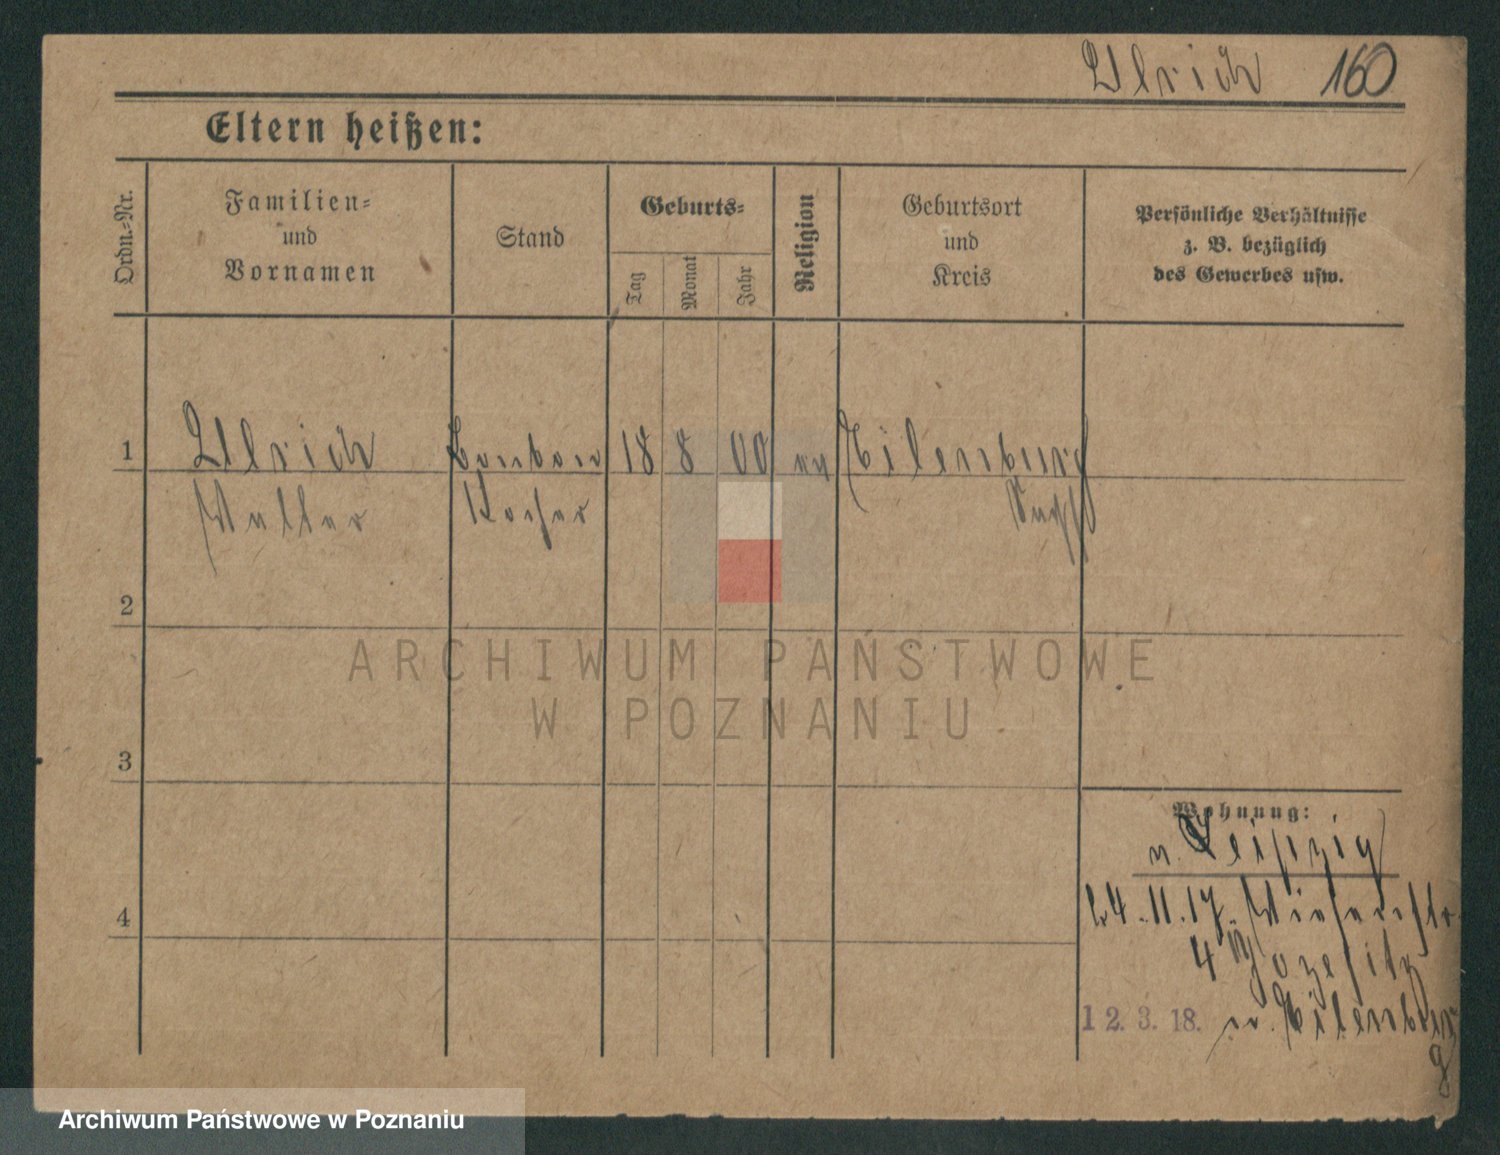 Ulrich 160
Eltern heißen:
Ordn.-Nr.
Familien-
und
Vornamen
Stand
Geburts-
Tag
Monat
Jahr
Religion
Geburtsort
und
Kreis
Persönliche Verhältnisse
z. B. bezüglich
des Gewerbes usw.
1 Ulrich 18 8 00 Eilenburg
Walter
2
3
4
ARCHIWUM PAŃSTWOWE
W POZNANIU
Wohnung:
n. Leipzig
24.11.17.
4
12. 3. 18. n. Eilenbur
g
Archiwum Państwowe w Poznaniu